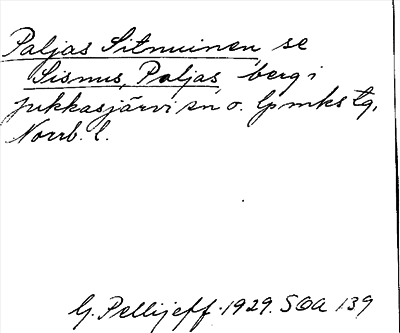 Paljas Sitnuinen, se
Sismus, Paljas, berg i
Jukkasjärvi sn o. lpmks tg,
Norrb. l.
G. Pellijeff. 1929. SOA 139